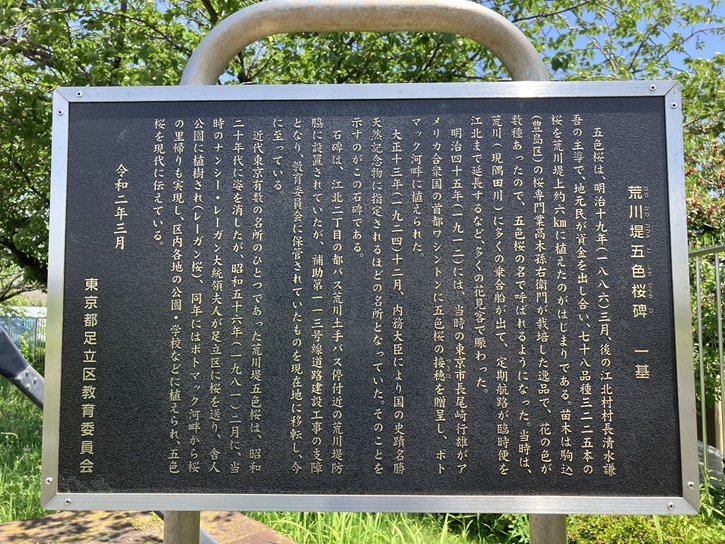 荒川堤五色桜碑　一基
五色桜は、明治十九年(一八八六)三月、後の江北村村長清水謙
吾の主導で、地元民が資金を出し合い、七十八品種三二二五本の
桜を荒川堤上約六kmに植えたのがはじまりである。苗木は駒込
(豊島区)の桜専門業高木孫右衛門が栽培した逸品で、花の色が
数種あったので、五色桜の名で呼ばれるようになった。当時は、
荒川(現隅田川)に多くの乗合船が出て、定期航路が臨時便を
江北まで延長するなど、多くの花見客で賑わった。
明治四十五年(一九一二)には、当時の東京市長尾崎行雄がア
メリカ合衆国の首都ワシントンに五色桜の接穂を贈呈し、ポト
マック河畔に植えられた。
大正十三年(一九二四)十二月、内務大臣により国の史蹟名勝
天然記念物に指定されるほどの名所となっていた。そのことを
示すのがこの石碑である。
石碑は、江北二丁目の都バス荒川土手バス停付近の荒川堤防
脇に設置されていたが、補助第一一三号線道路建設工事の支障
となり、教育委員会に保管されていたものを現在地に移転し、今
に至っている。
近代東京有数の名所のひとつであった荒川堤五色桜は、昭和
二十年代に姿を消したが、昭和五十六年(一九八一)二月に、当
時のナンシー・レーガン大統領夫人が足立区に桜を送り、舎人
公園に植樹され(レーガン桜)、同年にはポトマック河畔から桜
の里帰りも実現し、区内各地の公園・学校などに植えられ、五色
桜を現代に伝えている。
令和二年三月
東京都足立区教育委員会